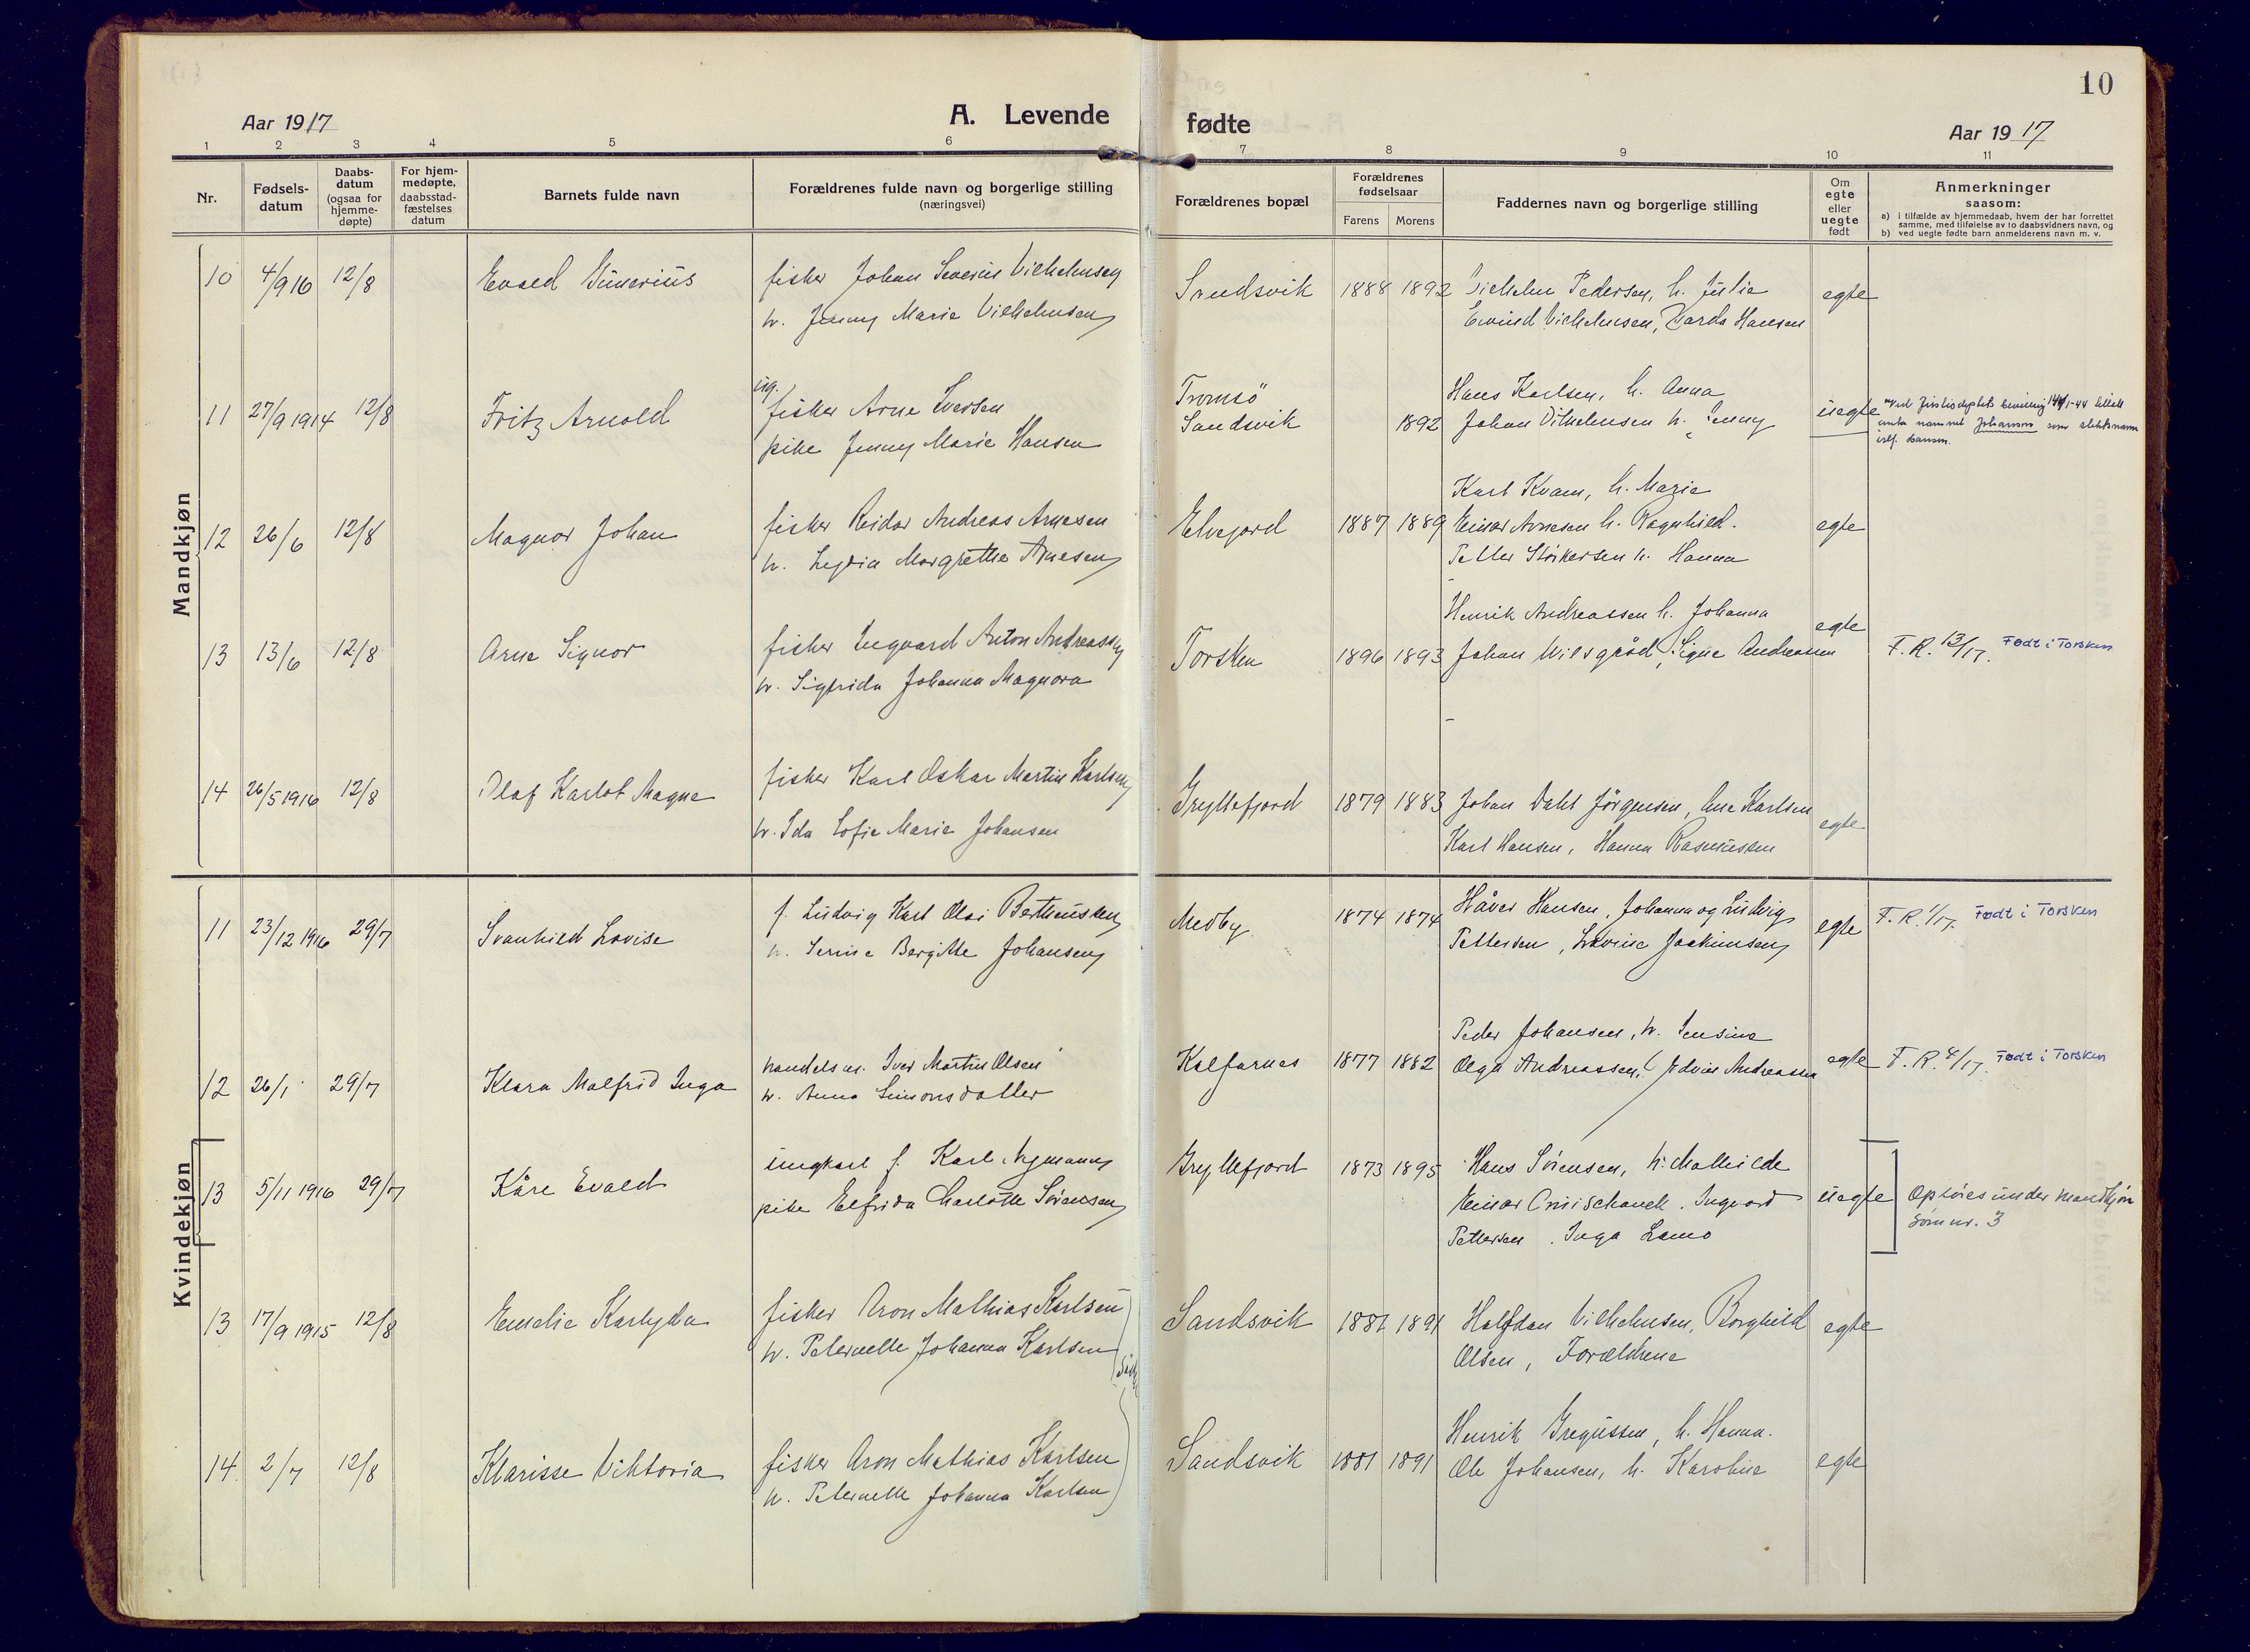 10
Aar 1917
A. Levende
fødte
Aar 1917
1 2 3 4 5 6 7 8 9 10 11
Nr.
Fødsels-
datum
Daabs-
datum
(ogsaa for
hjemme-
døpte)
For hjem-
medøpte,
daabsstad-
fæstelses
datum
Barnets fulde navn
Forældrenes fulde navn og borgerlige stilling
(næringsvei)
Forældrenes bopæl
Forældrenes
fødselsaar
Farens Morens
Faddernes navn og borgerlige stilling
Om
egte
eller
uegte
født
Anmerkninger
saasom:
a) i tilfælde av hjemmedaab, hvem der har forrettet
samme, med tilføielse av to daabsvidners navn, og
b) ved uegte fødte barn anmelderens navn m. v.
Mandkjøn
10 4/9 16 12/8 Evald
fisker Johan Severin Vilhelmsen
h. Jenny Marie Vilhelmsen
Sandsvik 1888 1892
Vilhelm Pedersen, h. Julie
Eivind Vilhelmsen, Hansen
egte
11 27/9 1914 12/8 Fritz Arnold
ug.
fisker Arne Iversen
pike Jenny Marie Hansen
Tromsö
Sandsvik 1892
Hans Karlsen, h. Anna
Johan Vilhelmsen h. Jenny
uegte
namnet Johansen som slektsnamn
12 26/6 12/8 Magnor Johan
fisker Reidar Andreas Arnesen
h. Lydia Margrethe Arnesen
Elvejord 1887 1889
Karl Kvam, h. Marie
Einar Arnesen h. Ragnhild.
Petter Störkersen h. Hanna
egte
13 13/6 12/8 Arne Signor
fisker Ingvard Anton Andreassen
h. Sigfrida Johanna Magnora
Torsken 1896 1893
Henrik Andreassen h. Johanna
Johan Nilsgård, Signe Andreassen
egte
F.R. 13/17. Født i Torsken
14 26/5 1916 12/8 Olaf Karlot Magne
fisker Karl Oskar Martin Karlsen
h. Ida Sofie Marie Johansen
Gryllefjord 1879 1883
Johan Dahl Jörgensen, Karlsen
Karl Hansen, Hanna Rasmussen
egte
Kvindekjøn
11 23/12 1916 29/7 Svanhild Lovise
f. Ludvig Karl Olai Bertheussen
h. Bergitte Johansen
Medby 1874 1874
Håver Hansen, Johanna og Ludvig
Pettersen, Joakimsen
egte
F.R. 1/17. Født i Torsken
12 26/1 29/7 Klara Malfrid Inga
handelsm. Iver Martin Olsen
h. Anna Simonsdatter
Kalfarnes 1877 1882
Peder Johansen, h. Jensine
Olga Andreassen, Edvin Andreassen
egte
F.R. 4/17. Født i Torsken
13 5/11 1916 29/7 Kåre Evald
ungkarl f. Karl Nymann
pike Elfrida Charlotte Sörensen
Gryllefjord 1873 1895
Hans Sörensen, h. Mathilde
Einar Ingvard
Pettersen. Inga
uegte
Opføres under mandkjøn
som nr. 3
13 17/9 1915 12/8 Emelie Karlyda
fisker Aron Mathias Karlsen
h. Peternelle Johanna Karlsen
Sandsvik 1881 1891
Halfdan Vilhelmsen, Borghild
Olsen, Forældrene
egte
14. 2/7 12/8 Klarisse Viktoria
fisker Aron Mathias Karlsen
h. Peternelle Johanna Karlsen
Sandsvik 1881 1891
Henrik Gregussen, h. Hanna.
Ole Johansen, h. Karoline
egte